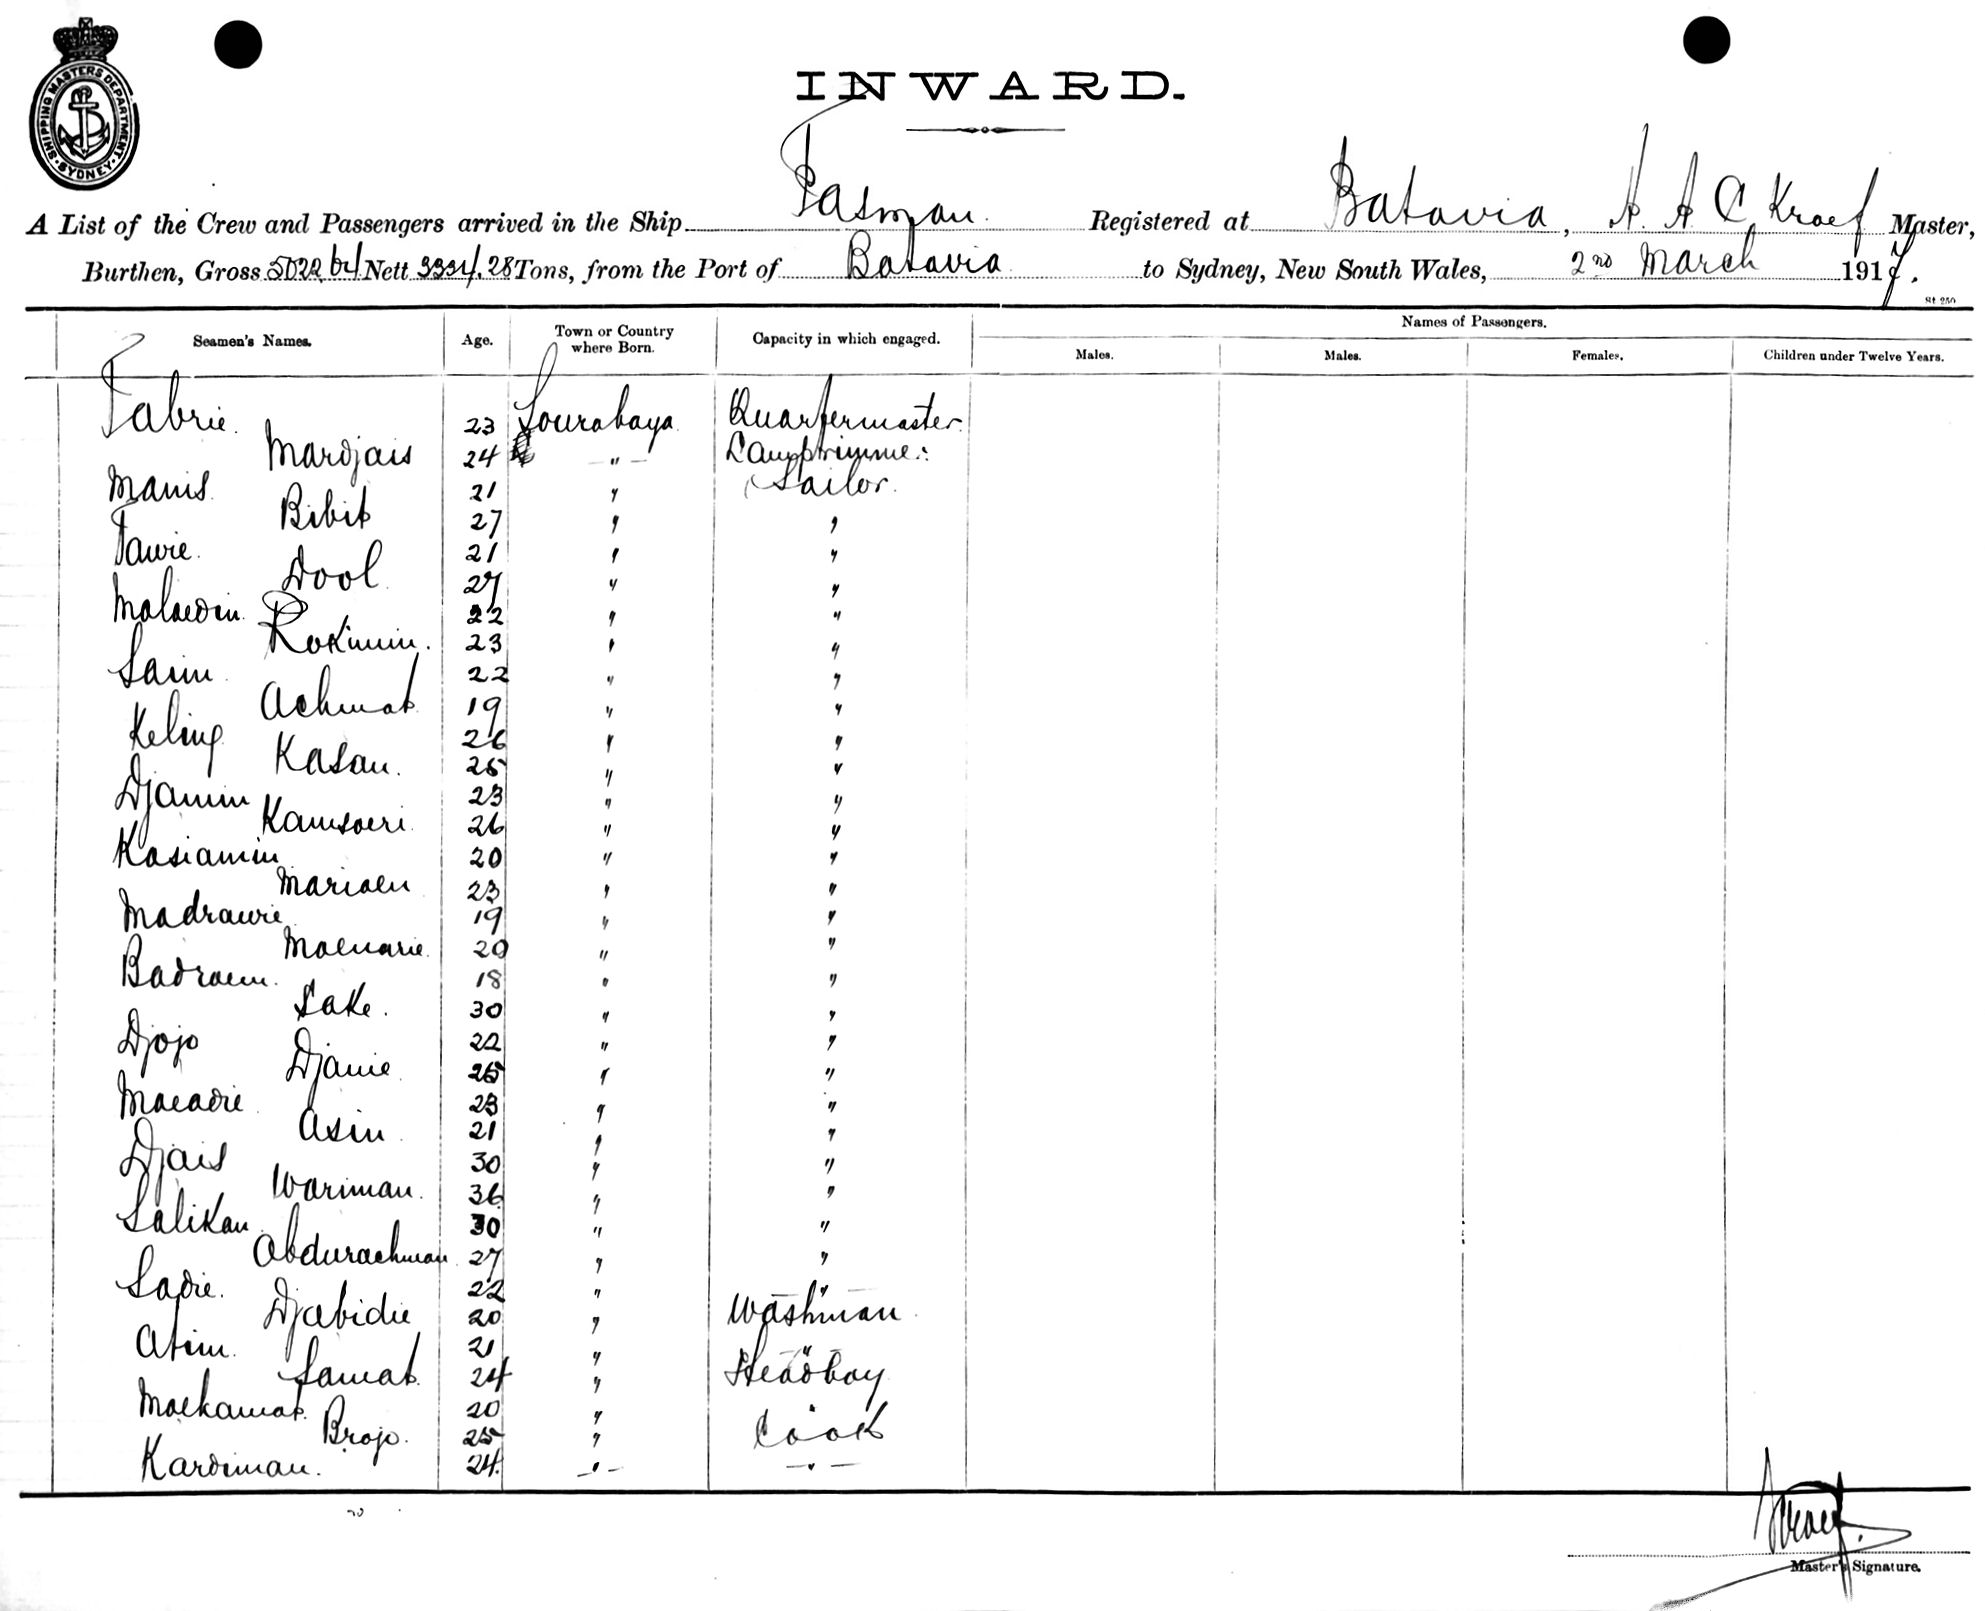 SHIPPING MASTERS DEPARTMENT
SYDNEY
INWARD.
A List of the Crew and Passengers arrived in the Ship Tasman. Registered at Batavia, A. A C Kroef Master,
Burthen, Gross 5022 64 Nett 3334.28 Tons, from the Port of Batavia to Sydney, New South Wales, 2nd March 1917.
St 250
Seamen's Names. Age. Town or Country where Born. Capacity in which engaged. Names of Passengers.
Males. Males. Females. Children under Twelve Years.
Tabrie. 23 Sourabaya Quartermaster
Mardjais 24 — " — Lamptrimmer
Manis. 21 " Sailor.
Bibit 27 " "
Tawie. 21 " "
Dool 27 " "
Maloedin. 22 " "
Rokimin. 23 " "
Saim 22 " "
Achmat 19 " "
Keling 26 " "
Kasan. 25 " "
Djamin 23 " "
Kamsoeri 26 " "
Kasiamin 20 " "
Marioen 23 " "
Madrawie 19 " "
Moenarie. 20 " "
Badroem. 18 " "
Sake. 30 " "
Djojo 22 " "
Djanie 25 " "
Moeadie 23 " "
Asin 21 " "
Djais 30 " "
Wariman. 36 " "
Salikan 30 " "
Abdurachman 27 " "
Sadie. 22 " "
Djabidie 20 " Washman
Atim. 21 " — " —
Samat. 24 " Headboy
Moekamat. 20 " "
Brojo. 25 " Cook
Kardiman. 24. — " — — " —
Kroef.
Master's Signature.